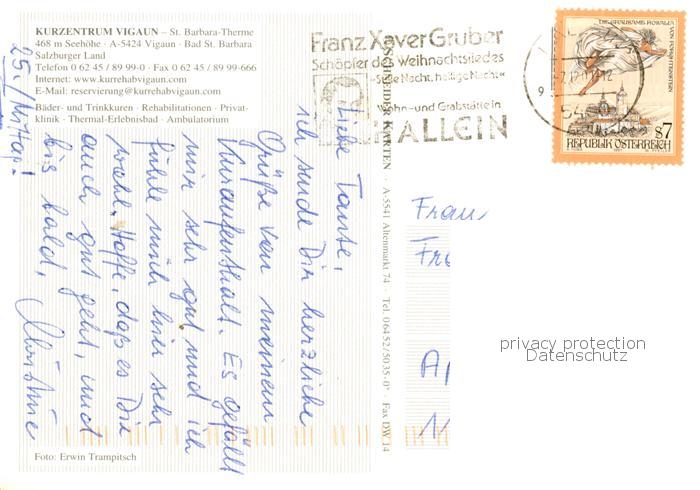 KURZENTRUM VIGAUN – St. Barbara-Therme
468 m Seehöhe · A-5424 Vigaun · Bad St. Barbara
Salzburger Land
Telefon 0 62 45 / 89 99-0 · Fax 0 62 45 / 89 99-666
Internet: www.kurrehabvigaun.com
E-Mail: reservierung@kurrehabvigaun.com
Bäder- und Trinkkuren · Rehabilitationen · Privat-
klinik · Thermal-Erlebnisbad · Ambulatorium
25./
Liebe Tante,
ich sende Dir herzliche
Grüße von meinem
Kuraufenthalt. Es gefällt
mir sehr gut und ich
fühle mich hier sehr
wohl. Hoffe, daß es Dir
auch gut geht, und
bis bald,
Christine
Foto: Erwin Trampitsch
SCHNEIDER KARTEN · A-5541 Altenmarkt 74 · Tel. 06452/5035-0 · Fax DW 14
Franz Xaver Gruber
Schöpfer des Weihnachtsliedes
"Stille Nacht, heilige Nacht"
Wohn- und Grabstätte in
HALLEIN
DIE GRAUSAME ROSALIA
VON FORCHTENSTEIN
S7
REPUBLIK ÖSTERREICH
Frau
privacy protection
Datenschutz